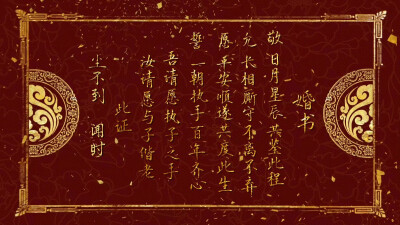 婚书
敬日月星辰共鉴此程
允长相厮守不离不弃
愿平安顺遂共度此生
誓一朝执子百年齐心
吾请愿执子之手
汝请愿与子偕老
此证
尘不到 谢时